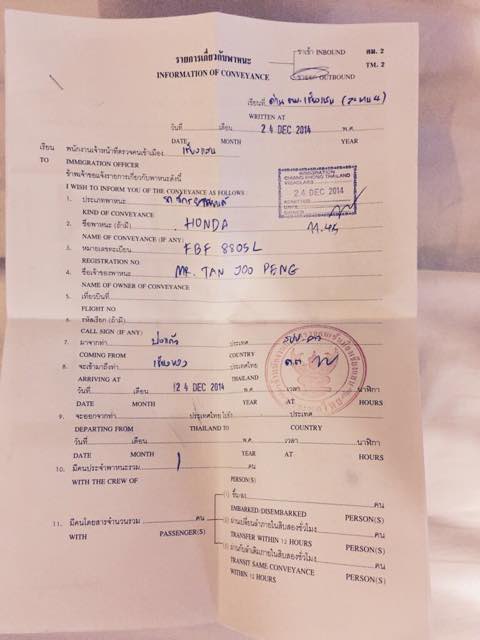 รายการเกี่ยวกับพาหนะ
INFORMATION OF CONVEYANCE
ขาเข้า INBOUND
ขาออก OUTBOUND
ตม. 2
TM. 2
เขียนที่
WRITTEN AT
วันที่ เดือน 24 DEC 2014 พ.ศ.
DATE MONTH YEAR
เรียน พนักงานเจ้าหน้าที่ตรวจคนเข้าเมือง เชียงแสน
TO IMMIGRATION OFFICER
ข้าพเจ้าขอแจ้งรายการเกี่ยวกับพาหนะดังนี้
I WISH TO INFORM YOU OF THE CONVEYANCE AS FOLLOWS :
IMMIGRATION
CHIANG KHONG THAILAND
24 DEC 2014
SIGNED
11.45
1. ประเภทพาหนะ รถจักรยานยนต์
KIND OF CONVEYANCE
2. ชื่อพาหนะ (ถ้ามี) HONDA
NAME OF CONVEYANCE (IF ANY)
3. หมายเลขทะเบียน FBF 8805L
REGISTRATION NO
4. ชื่อเจ้าของพาหนะ MR. TAN JOO PENG
NAME OF OWNER OF CONVEYANCE
5. เที่ยวบินที่
FLIGHT NO
6. รหัสเรียก (ถ้ามี)
CALL SIGN (IF ANY)
7. มาจากท่า ประเทศ
COMING FROM COUNTRY
8. จะเข้ามาถึงท่า เชียงของ ประเทศไทย
ARRIVING AT THAILAND
วันที่ เดือน 24 DEC 2014 พ.ศ. เวลา นาฬิกา
DATE MONTH YEAR AT HOURS
9. จะออกจากท่า ประเทศไทย ไปท่า ประเทศ
DEPARTING FROM THAILAND TO COUNTRY
วันที่ เดือน พ.ศ. เวลา นาฬิกา
DATE MONTH YEAR AT HOURS
10. มีคนประจำพาหนะรวม 1 คน
WITH THE CREW OF PERSON(S)
11. มีคนโดยสารจำนวนรวม คน
WITH PASSENGER(S)
(1) ขึ้น/ลง คน
EMBARKED/DISEMBARKED PERSON(S)
(2) ผ่านเปลี่ยนลำภายในสิบสองชั่วโมง คน
TRANSFER WITHIN 12 HOURS PERSON(S)
(3) ผ่านกับลำเดิมภายในสิบสองชั่วโมง คน
TRANSIT SAME CONVEYANCE
WITHIN 12 HOURS PERSON(S)